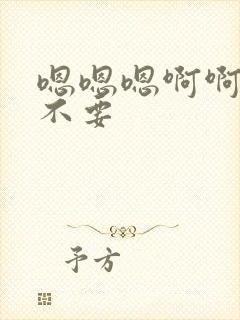 嗯嗯嗯啊啊
不要
予方